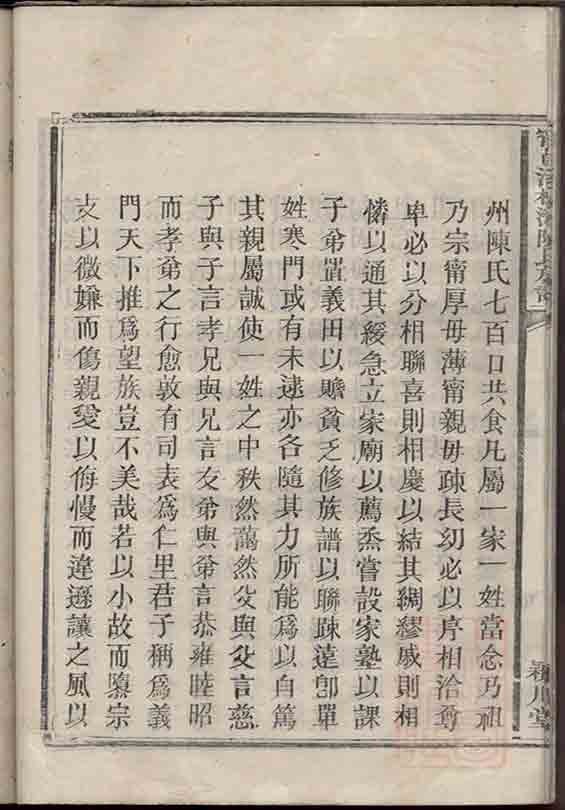 州陳氏七百口共食凡屬一家一姓當念乃祖
乃宗甯厚毋薄甯親毋疎長幼必以序相洽尊
卑必以分相聯喜則相慶以結其綢繆戚則相
憐以通其緩急立家廟以薦烝嘗設家塾以課
子弟置義田以贍貧乏修族譜以聯疎遠卽單
姓寒門或有未逮亦各隨其力所能爲以自篤
其親屬誠使一姓之中秩然藹然父與父言慈
子與子言孝兄與兄言友弟與弟言恭雍睦昭
而孝弟之行愈敦有司表爲仁里君子稱爲義
門天下推爲望族豈不美哉若以小故而隳宗
支以微嫌而傷親愛以侮慢而違遜讓之風以
潁川堂